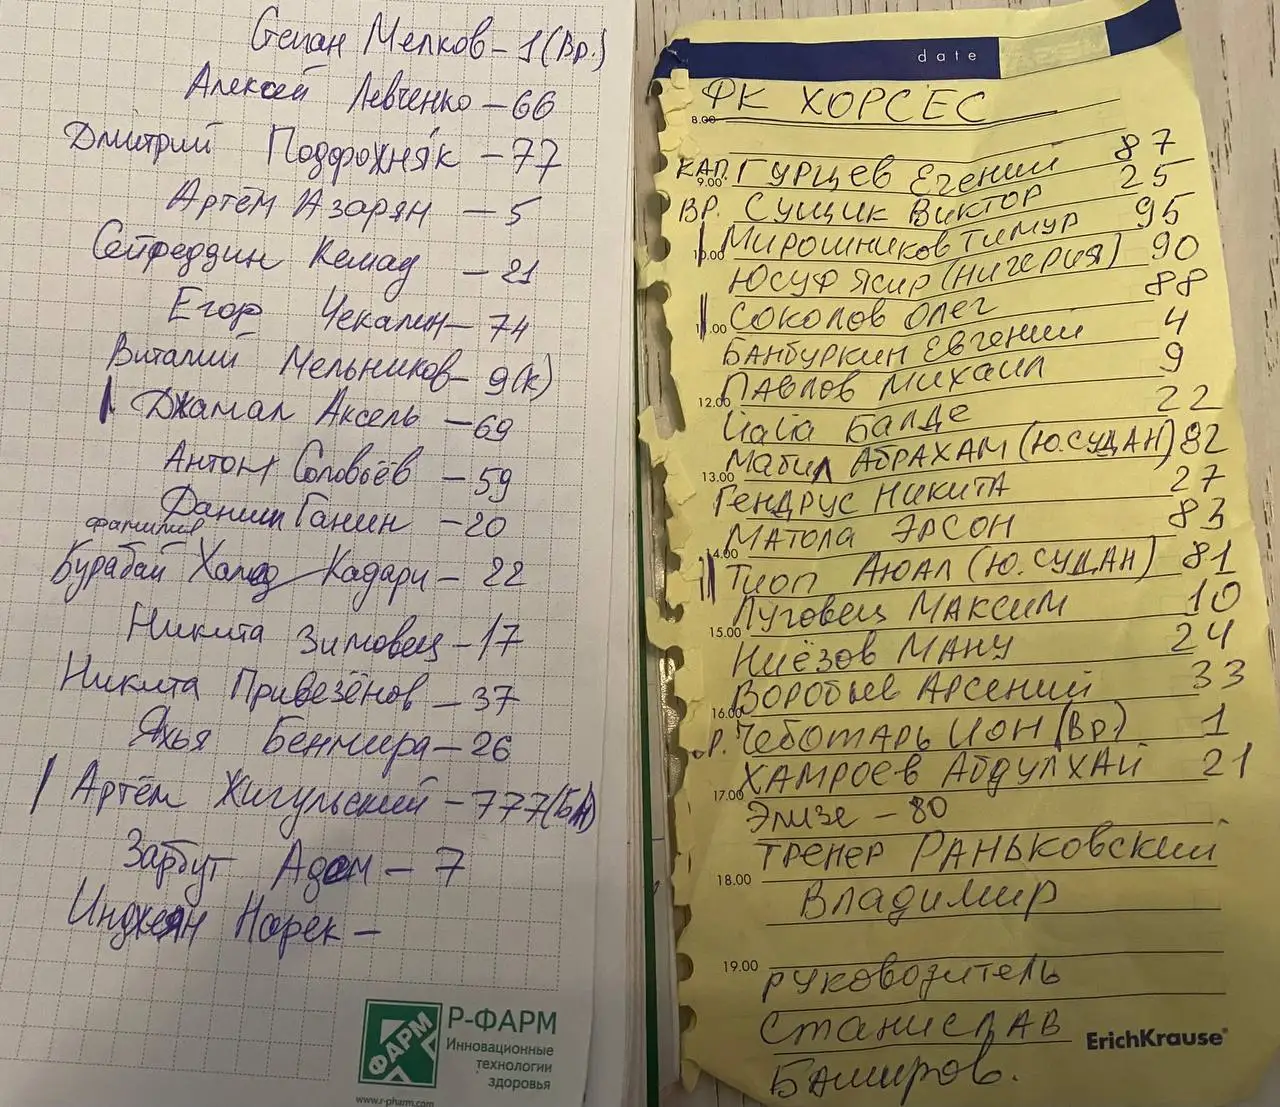 Степан Мелков – 1 (Вр.)
Алексей Левченко – 66
Дмитрий Подорожняк – 77
Артём Азарян – 5
Сейфеддин Кемад – 21
Егор Чекалин – 74
Виталий Мельников – 9 (к)
Джамал Аксель – 69
Антон Соловьёв – 59
Данил Ганин – 20
фамилия
Бурабай Халед Кадари – 22
Никита Зимовец – 17
Никита Привезёнов – 37
Яхья Бенмира – 26
Артём Жигульский – 777
Зарбут Адам – 7
Норек –
Р-ФАРМ
Инновационные
технологии
здоровья
www.r-pharm.com
ФАРМ
date
ФК ХОРСЕС
8.00
КАП. ГУРЦЕВ ЕГЕНИЙ 87
9.00
ВР. СУЩИК ВИКТОР 25
МИРОШНИКОВ ТИМУР 95
10.00
ЮСУФ ЯСИР (НИГЕРИЯ) 90
СОКОЛОВ ОЛЕГ 88
11.00
БАНБУРКИН ЕВГЕНИЙ 4
ПАВЛОВ МИХАИЛ 9
12.00
ЙаЙа БАЛДЕ 22
МАБИЛ АБРАХАМ (Ю.СУДАН) 82
13.00
ГЕНДРУС НИКИТА 27
МАТОЛА ЭРСОН 83
14.00
ТИОП АЮАЛ (Ю.СУДАН) 81
ЛУГОВЕЦ МАКСИМ 10
15.00
НИЁЗОВ МАНУ 24
ВОРОБЬЕВ АРСЕНИЙ 33
16.00
Р. ЧЕБОТАРЬ ИОН (ВР) 1
ХАМРОЕВ АБДУЛХАЙ 21
17.00
ЭЛИЗЕ – 80
ТРЕНЕР РАНЬКОВСКИЙ
18.00
ВЛАДИМИР
19.00
РУКОВОДИТЕЛЬ
СТАНИСЛАВ
БАМИРОВ.
ErichKrause®